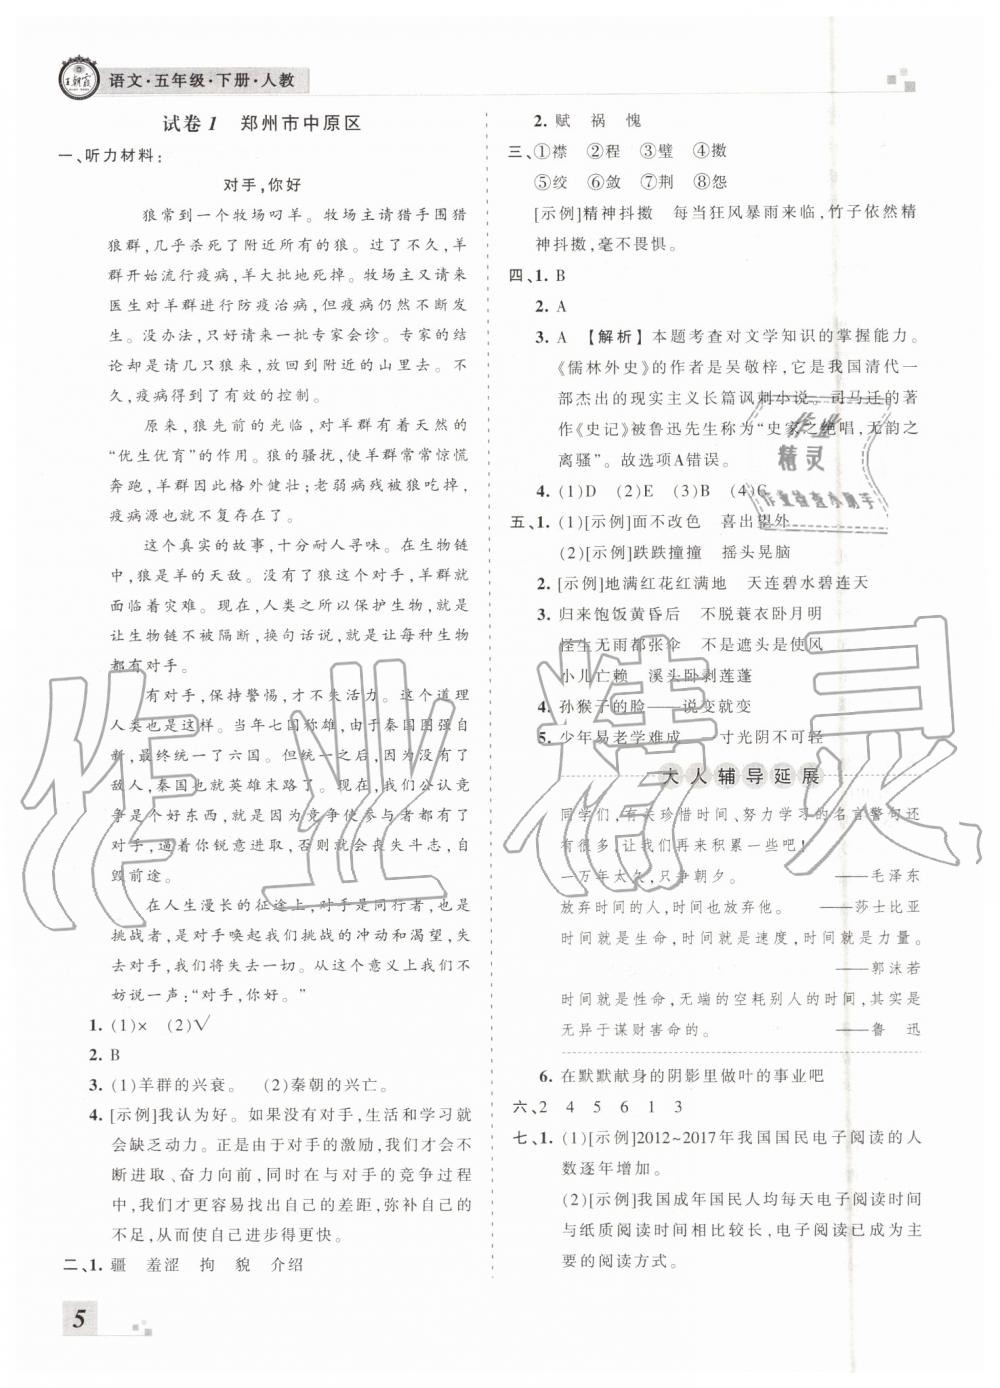 王朝霞
语文·五年级·下册·人教
试卷1 郑州市中原区
一、听力材料：
对手，你好
狼常到一个牧场叼羊。牧场主请猎手围猎
狼群，几乎杀死了附近所有的狼。过了不久，羊
群开始流行疫病，羊大批地死掉。牧场主又请来
医生对羊群进行防疫治病，但疫病仍然不断发
生。没办法，只好请来一批专家会诊。专家的结
论却是请几只狼来，放回到附近的山里去。不
久，疫病得到了有效的控制。
原来，狼先前的光临，对羊群有着天然的
“优生优育”的作用。狼的骚扰，使羊群常常惊慌
奔跑，羊群因此格外健壮；老弱病残被狼吃掉，
疫病源也就不复存在了。
这个真实的故事，十分耐人寻味。在生物链
中，狼是羊的天敌。没有了狼这个对手，羊群就
面临着灾难。现在，人类之所以保护生物，就是
让生物链不被隔断，换句话说，就是让每种生物
都有对手。
有对手，保持警惕，才不失活力。这个道理
人类也是这样。当年七国称雄，由于秦国图强自
新，最终统一了六国。但统一之后，因为没有了
敌人，秦国也就英雄末路了。我们公认竞
争是个好东西，就是因为竞争使参与者都有了
对手，逼着你锐意进取，否则就会丧失斗志，自
毁前途。
在人生漫长的征途上，对手是同行者，也是
挑战者，是对手唤起我们挑战的冲动和渴望，失
去对手，我们将失去一切。从这个意义上我们不
妨说一声：“对手，你好。”
1. (1)× (2)√
2. B
3. (1)羊群的兴衰。 (2)秦朝的兴亡。
4. [示例]我认为好。如果没有对手，生活和学习就
会缺乏动力。正是由于对手的激励，我们才会不
断进取、奋力向前，同时在与对手的竞争过程
中，我们才更容易找出自己的差距，弥补自己的
不足，从而使自己进步得更快。
二、1. 疆 羞涩 拘 貌 介绍
5
2. 赋 祸 愧
三、①襟 ②程 ③璧 ④擞
⑤绞 ⑥敛 ⑦荆 ⑧怨
[示例]精神抖擞 每当狂风暴雨来临，竹子依然精
神抖擞，毫不畏惧。
四、1. B
2. A
3. A 【解析】本题考查对文学知识的掌握能力。
《儒林外史》的作者是吴敬梓，它是我国清代一
部杰出的现实主义长篇讽刺小说。司马迁的著
作《史记》被鲁迅先生称为“史家之绝唱，无韵之
离骚”。故选项A错误。
4. (1)D (2)E (3)B (4)C
五、1. (1)[示例]面不改色 喜出望外
(2)[示例]跌跌撞撞 摇头晃脑
2. [示例]地满红花红满地 天连碧水碧连天
3. 归来饱饭黄昏后 不脱蓑衣卧月明
怪生无雨都张伞 不是遮头是使风
小儿亡赖 溪头卧剥莲蓬
4. 孙猴子的脸——说变就变
5. 少年易老学难成 一寸光阴不可轻
大人辅导延展
同学们，有关珍惜时间、努力学习的名言警句还
有很多，让我们再来积累一些吧！
一万年太久，只争朝夕。 ——毛泽东
放弃时间的人，时间也放弃他。 ——莎士比亚
时间就是生命，时间就是速度，时间就是力量。
——郭沫若
时间就是性命，无端的空耗别人的时间，其实是
无异于谋财害命的。 ——鲁 迅
6. 在默默献身的阴影里做叶的事业吧
六、2 4 5 6 1 3
七、1. (1)[示例]2012~2017年我国国民电子阅读的人
数逐年增加。
(2)[示例]我国成年国民人均每天电子阅读时间
与纸质阅读时间相比较长，电子阅读已成为主
要的阅读方式。
作业精灵
作业
精灵
作业检查小助手